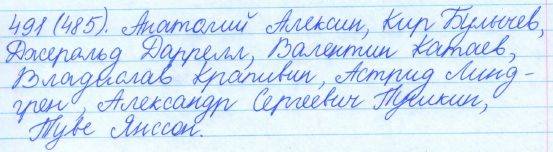 491 (485). Анатолий Алексин, Кир Булычев,
Джеральд Даррелл, Валентин Катаев,
Владислав Крапивин, Астрид Линд-
грен, Александр Сергеевич Пушкин,
Туве Янссон.